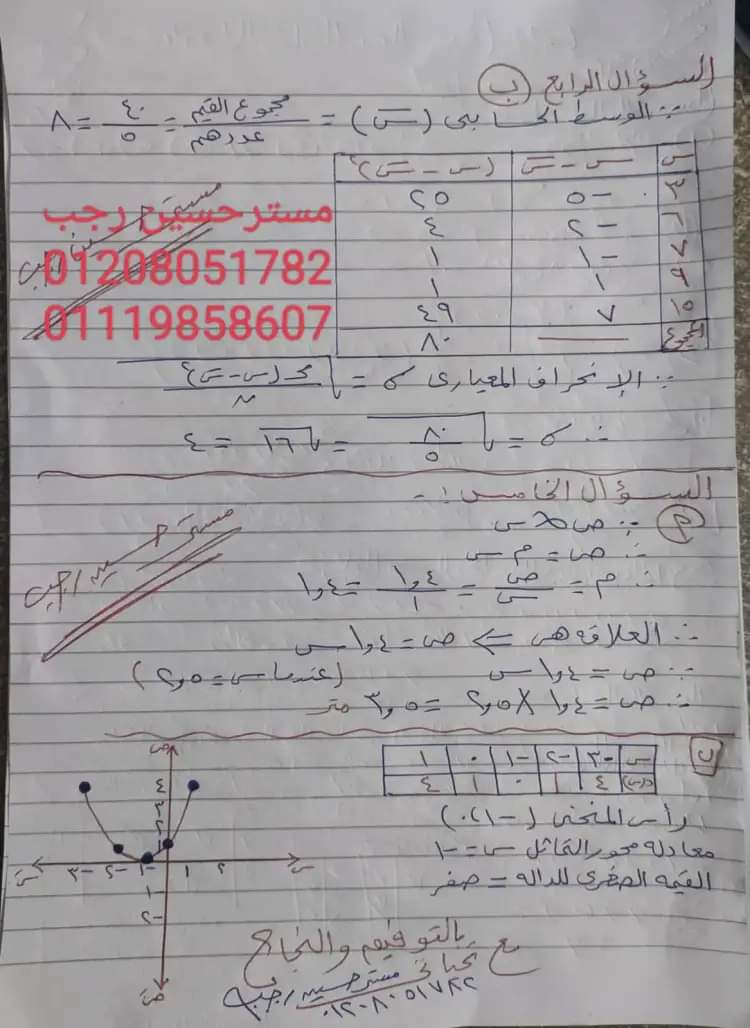 السؤال الرابع (ب)
∵ الوسط الحسابى (س̄) = مجموع القيم / عددهم = ٤٠ / ٥ = ٨
س | س - س̄ | (س - س̄)٢
٣ | -٥ | ٢٥
٦ | -٢ | ٤
٧ | -١ | ١
٩ | ١ | ١
١٥ | ٧ | ٤٩
المجموع | — | ٨٠
مستر حسين رجب
مستر حسين رجب
01208051782
01119858607
∵ الإنحراف المعيارى σ = √(مجـ(س - س̄)٢ / ن)
∴ σ = √(٨٠ / ٥) = √١٦ = ٤
السؤال الخامس :-
(٢) ∵ ص ∝ س
∴ ص = م س
∴ م = ص / س = ١,٤ / ١ = ١,٤
مستر حسين رجب
∴ العلاقة هى ⇐ ص = ١,٤ س
∵ ص = ١,٤ س (عندما س = ٢,٥)
∴ ص = ١,٤ × ٢,٥ = ٣,٥ متر
ب
س | -٣ | -٢ | -١ | ٠ | ١
د(س) | ٤ | ١ | ٠ | ١ | ٤
رأس المنحنى (-١ ، ٠)
معادلة محور التماثل س = -١
القيمة الصغرى للداله = صفر
ص
٤
٣
٢
١
سَ -٣ -٢ -١ ١ ٢ س
-١
-٢
صَ
بالتوفيق والنجاح
مع تحياتى مستر حسين رجب
٠١٢٠٨٠٥١٧٨٢